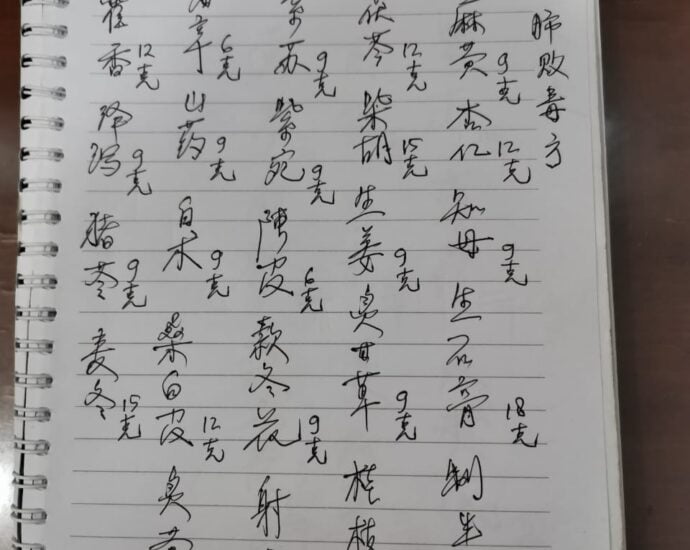 肺败毒方
麻黄9克 杏仁12克 知母9克 生石膏18克 制半
茯苓12克 柴胡15克 生姜9克 炙甘草9克 桂枝
紫苏9克 紫宛9克 陳皮6克 款冬花9克 射
辛6克 山药9克 白术9克 桑白皮12克 炙
藿香12克 泽泻9克 猪苓9克 麦冬15克